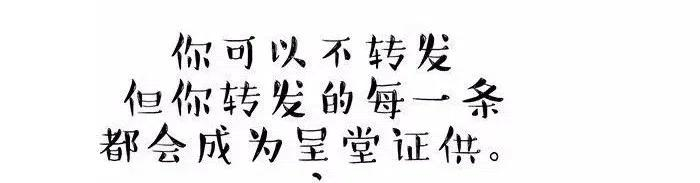 你可以不转发
但你转发的每一条
都会成为呈堂证供。